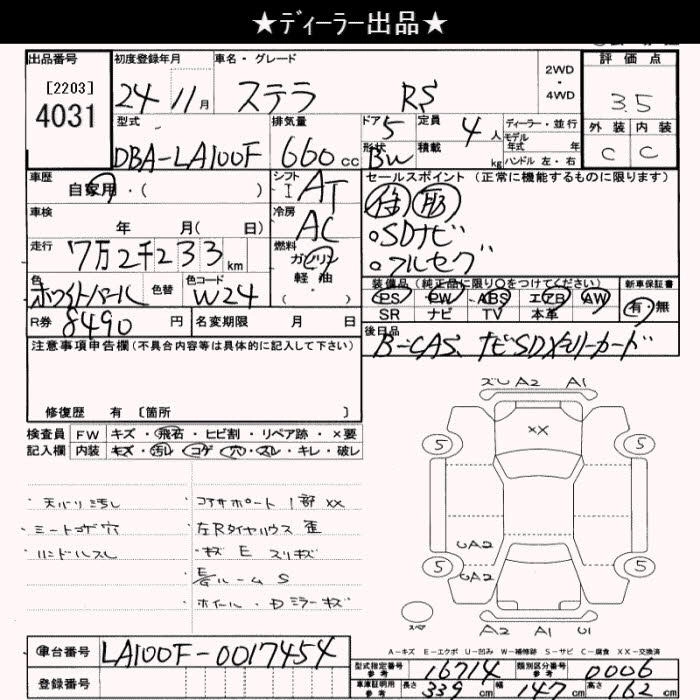 ★ディーラー出品★
出品番号
[2203]
4031
初度登録年月
24 11月
車名・グレード
ステラ RS
2WD
・
4WD
評価点
3.5
外装 内装
C C
型式
DBA-LA100F
排気量
660cc
ドア 5
形状 BW
定員 4人
積載 kg
ディーラー・並行
モデル
年式 年
ハンドル 左・右
車歴
自家用・( )
シフト
I AT
冷房
AC
セールスポイント (正常に機能するものに限ります)
SDナビ
フルセグ
車検
年 月( 日)
走行
7万2千233km
燃料
ガソリン
軽油
( ・ )
色
ホワイトパール
色替
色コード
W24
装備品(純正品に限り○をつけてください)
PS PW ABS エアB AW
SR ナビ TV 本革
新車保証書
有・無
R券 8490円
名変期限 月 日
後日品
B-CAS、ナビSDメモリーカード
注意事項申告欄(不具合内容等は具体的に記入して下さい)
修復歴 有 [箇所 ]
検査員
記入欄
FW キズ・飛石・ヒビ割・リペア跡・×要
内装 キズ・汚レ・コゲ・穴・スレ・キレ・破レ
・天バリ汚し
・シートコゲ穴
・ハンドルスレ
・コアサポート1部XX
・左Rタイヤハウス歪
・キズ E スリキズ
・ルームS
・ホイール・Dミラーキズ
ズレ A2 A1
XX
5 5
A2
A2
5 5
A2 A1 U1
A-キズ E-エクボ U-凹み W-補修跡 S-サビ C-腐食 XX-交換済
車台番号 LA100F-0017454
登録番号
型式指定番号
参考
16714
類別区分番号
参考
0006
車庫証明用
参考
長さ 339cm 幅 147cm 高さ 162cm